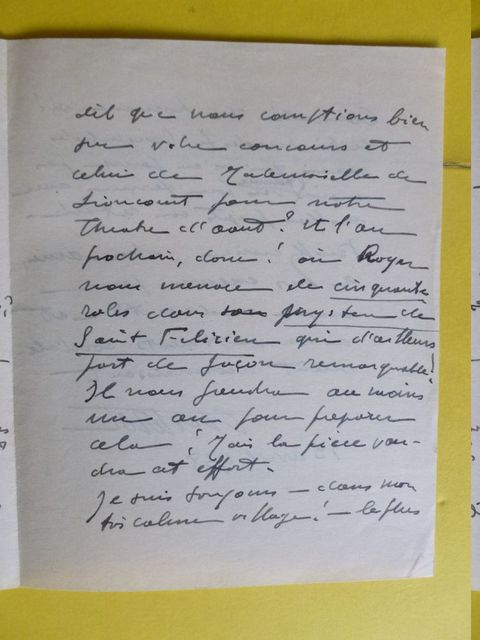 dit que nous comptions bien
sur votre concours et
celui de Mademoiselle de
Lioncourt pour notre
Théâtre d'août? Et l'an
prochain, donc! où Roger
nous menace de cinquante
rôles dans son mystère de
Saint Félicien qui d'ailleurs
part de façon remarquable!
Il nous faudra au moins
un an pour préparer
cela! Mais la pièce vau-
dra cet effort.
Je suis toujours – dans mon
très calme village! – le plus